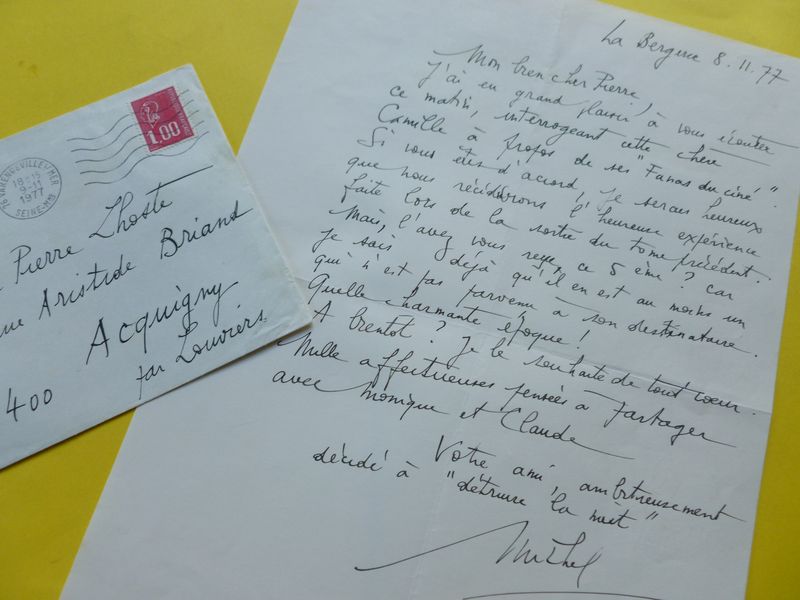 La Bergerie 8.11.77
Mon bien cher Pierre,
J'ai eu grand plaisir, à vous écouter
ce matin, interrogeant cette chère
Camille à propos de ses "Fanas du ciné".
Si vous êtes d'accord, je serais heureux
que nous récidivions l'heureuse expérience
faite lors de la sortie du tome précédent.
Mais, l'avez vous reçu, ce 5ème ? Car
je sais déjà qu'il en est au moins un
qui n'est pas parvenu à son destinataire.
Quelle charmante époque !
A bientôt ? Je le souhaite de tout coeur.
Mille affectueuses pensées à partager
avec Monique et Claude
Votre ami, ambitieusement
décidé à "détruire la nuit"
Michel
1.00
76 VARENGEVILLE S/MER
18-15
9-11
1977
SEINE-MME
Pierre Lhoste
rue Aristide Briand
Acquigny
par Louviers
400